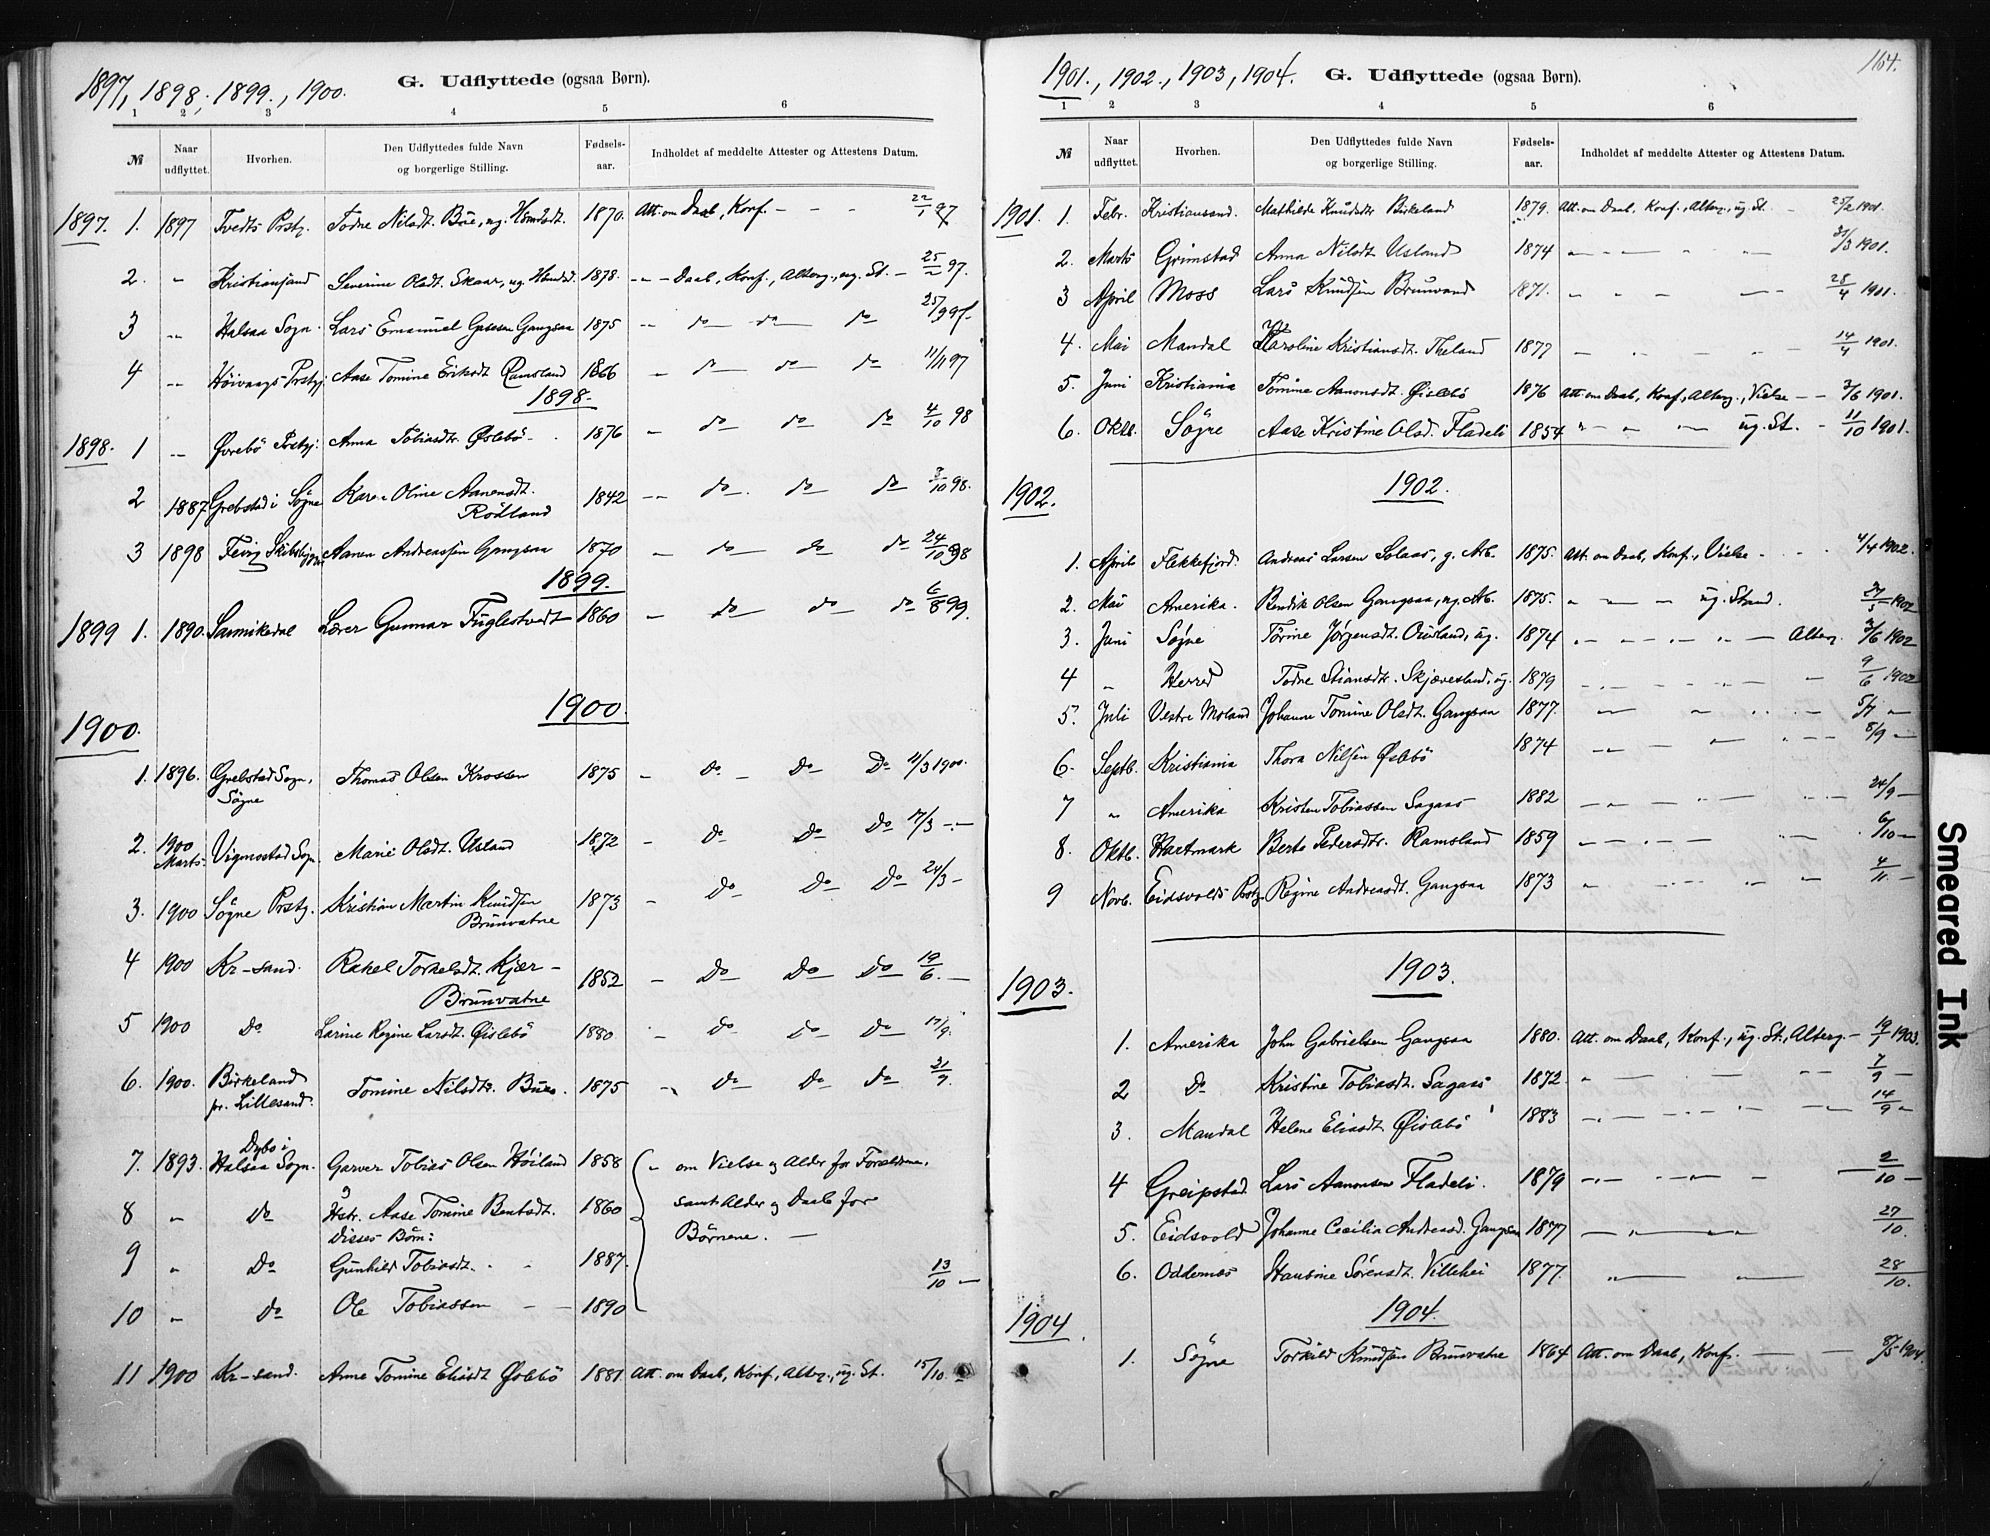 1897, 1898, 1899., 1900. G. Udflyttede (ogsaa Børn).
1 2 3 4 5 6
№ Naar udflyttet. Hvorhen. Den Udflyttedes fulde Navn og borgerlige Stilling. Fødsels-aar. Indholdet af meddelte Attester og Attestens Datum.
1897. 1. 1897 Tvedts Prstgj. Todne Nilsdt. Bue, ug. 1870. Att. om Daab, Konf. - - - 22/1 97
2. " Kristiansand Severine Olsdt. Skaar, ug. 1878. - - Daab, Konf., Alterg., ug. St. - 25/2 97.
3 " Halsaa Sogn. Lars Emanuel Gangsaa 1875 - do do do 25/9 97
4 " Høivaags Prstgj. Aase Tomine Eriksdt. Ramsland 1866 - do do do 11/11 97
1898.
1898. 1 " Øvrebö Prstgj. Anna Tobiasdtr. Øslebö - 1876 - do do do 4/10 98
2 1887 Grebstad i Sögne Karen Oline Aanensdt. 1842 - do. do do 3/10 98.
Rödland
3 1898 Aanen Andreassen Gangsaa 1870 - do do do 24/10 98
1899.
1899 1. 1890. Sannikedal Lærer Gunnar Fuglestvedt 1860 - do do do 6/8 99.
1900.
1900.
1. 1896. Grebstad Sogn, Thomas Olsen Krossen 1875 - Do - Do Do 11/3 1900.
Sögne
2. 1900 Marts. Vigmostad Sogn. Marie Olsdt. Usland 1872 - Do Do Do 17/3 -
3. 1900 Sögne Prstgj. Kristian Martin Knudsen 1873 - Do Do Do 24/3 -
Brunvatne
4 1900 Kr-sand. Rakel Torkelsdt. Kjær- 1852 - Do Do Do 19/6. -
Brunvatne
5 1900 Do Larine Regine Larsdt. Øislebö 1880 - Do Do Do 17/9.
6. 1900. Birkeland Tomine Nilsdtr. Bue. 1875 " Do Do Do 21/9.
pr. Lillesand.
Dybo i
7. 1893. Halsaa Sogn. Garver Tobias Olsen Höiland 1858 " om Vielse og Alder for Forældrene,
8 " Do Hstr. Aase Tomine Bentsdt. 1860 samt Alder og Daab for
Disses Börn: Börnene. -
9 " Do Gunhild Tobiasdt. - - 1887. 13/10 -
10 " Do Ole Tobiassen - - 1890
11 1900 Kr-sand. Anne Tomine Eliasdt. Øslebö 1881 Att. om Daab, Konf., Alterg., ug. St. 15/10.
164.
1901., 1902., 1903, 1904. G. Udflyttede (ogsaa Børn).
1 2 3 4 5 6
№ Naar udflyttet. Hvorhen. Den Udflyttedes fulde Navn og borgerlige Stilling. Fødsels-aar. Indholdet af meddelte Attester og Attestens Datum.
1901. 1. Febr. Kristiansand. Mathilde Knudsdtr. Birkeland 1879. Att. om Daab, Konf., Alterg., ug. St. - 25/2 1901.
2. Marts Grimstad Anna Nilsdt. Usland 1874 - - - - - 21/3 1901.
3 April Moss Lars Knudsen Brunvand 1871. - - - - 28/4 1901.
4. Mai Mandal Karoline Kristiansdt. Theland 1877 - - - - 14/4 1901.
5. Juni Kristiania Tomine Aanonsdt. Øislebö 1876 Att. om Daab, Konf., Alterg., Vielse - - 3/6 1901.
6. Oktb. Sögne Aase Kristine Olsd. Fladeli 1854 " - " - ug. St. - 11/10 1901.
1902. 1902.
1. April Flekkefjord. Andreas Larsen Solaas, g. Arb. 1875. Att. om Daab, Konf., Vielse - - - 4/4 1902.
2. Mai Amerika. Bendik Olsen Gangsaa, ug. Arb. 1875. " - - ug. Stand. 27/5 1902
3. Juni Søgne Törine Jørgensdt. Ousland, ug. 1874 - - - - - Alterg. 3/6 1902
4 " Herred Todne Stiansdtr. Skjævesland, ug. 1879 - - - - - 9/6 1902
5. Juli Vestre Moland Johanne Tomine Olsdt. Gangsaa 1877. - - - - - 5/7 -
6. Septb. Kristiania Thora Nilsen Øslebö 1874 - - - - - 8/9 -
7 " Amerika Kristen Tobiassen Sagaas 1882 - - - - - 24/9 -
8. Oktb. Hartmark Berte Pedersdtr. Ramsland 1859 - - - - - 6/10 -
9 Novb. Eidsvolds Prstgj. Regine Andreasdt. Gangsaa 1873 " - - - - 4/11. -
1903. 1903.
1. Amerika John Gabrielsen Gangsaa 1880. Att. om Daab, Konf., ug. St., Alterg. - 19/7 1903.
2 Do Kristine Tobiasdt. Sagaas 1872. " - - - - 7/9 -
3. Mandal Helene Eliasdt. Øislebö 1883 - - - - - 14/9 "
4 Greipstad. Lars Aanonsen Fladeli. 1879 - - - " - - 2/10 -
5. Eidsvold Johanne Cecilia Andreasd. Gangsaa 1877 - " - " 27/10.
6. Oddernes Stausine Sörensdt. Villehei 1877. " - - 28/10.
1904 1904.
1. Sögne Torkild Knudsen Brunvatne 1864 Att. om Daab, Konf. - - 8/5 1904.
Smeared Ink